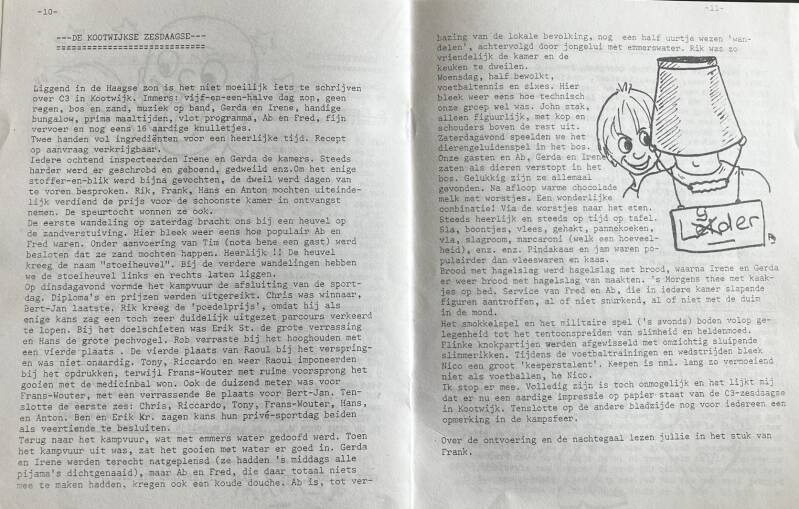 -10-
---DE KOOTWIJKSE ZESDAAGSE---
=============================
Liggend in de Haagse zon is het niet moeilijk iets te schrijven
over C3 in Kootwijk. Immers: vijf-en-een-halve dag zon, geen
regen, bos en zand, muziek op band, Gerda en Irene, handige
bungalow, prima maaltijden, vlot programma, Ab en Fred, fijn
vervoer en nog eens 16 aardige knulletjes.
Twee handen vol ingrediënten voor een heerlijke tijd. Recept
op aanvraag verkrijgbaar.
Iedere ochtend inspecteerden Irene en Gerda de kamers. Steeds
harder werd er geschrobd en geboend, gedweild enz.Om het enige
stoffer-en-blik werd bijna gevochten, de dweil werd dagen van
te voren besproken. Rik, Frank, Hans en Anton mochten uiteinde-
lijk verdiend de prijs voor de schoonste kamer in ontvangst
nemen. De speurtocht wonnen ze ook.
De eerste wandeling op zaterdag bracht ons bij een heuvel op
de zandverstuiving. Hier bleek weer eens hoe populair Ab en
Fred waren. Onder aanvoering van Tim (nota bene een gast) werd
besloten dat ze zand mochten happen. Heerlijk !! De heuvel
kreeg de naam "stoeiheuvel". Bij de verdere wandelingen hebben
we de stoeiheuvel links en rechts laten liggen.
Op dinsdagavond vormde het kampvuur de afsluiting van de sport-
dag. Diploma's en prijzen werden uitgereikt. Chris was winnaar,
Bert-Jan laatste. Rik kreeg de 'poedelprijs', omdat hij als
enige kans zag een toch zeer duidelijk uitgezet parcours verkeerd
te lopen. Bij het doelschieten was Erik St. de grote verrassing
en Hans de grote pechvogel. Rob verraste bij het hooghouden met
een vierde plaats . De vierde plaats van Raoul bij het verspring-
en was niet onaardig. Tony, Riccardo en weer Raoul imponeerden
bij het opdrukken, terwijl Frans-Wouter met ruime voorsprong het
gooien met de medicinbal won. Ook de duizend meter was voor
Frans-Wouter, met een verrassende 8e plaats voor Bert-Jan. Ten-
slotte de eerste zes: Chris, Riccardo, Tony, Frans-Wouter, Hans,
en Anton. Ben en Erik Kr. zagen kans hun privé-sportdag beiden
als veertiende te besluiten.
Terug naar het kampvuur, wat met emmers water gedoofd werd. Toen
het kampvuur uit was, zat het gooien met water er goed in. Gerda
en Irene werden terecht natgeplensd (ze hadden 's middags alle
pijama's dichtgenaaid), maar Ab en Fred, die daar totaal niets
mee te maken hadden, kregen ook een koude douche. Ab is, tot ver-
-11-
bazing van de lokale bevolking, nog een half uurtje wezen 'wan-
delen', achtervolgd door jongelui met emmerswater. Rik was zo
vriendelijk de kamer en de
keuken te dweilen.
Woensdag, half bewolkt,
voetbaltennis en sixes. Hier
bleek weer eens hoe technisch
onze groep wel was. John stak,
alleen figuurlijk, met kop en
schouders boven de rest uit.
Zaterdagavond speelden we het
dierengeluidenspel in het bos.
Onze gasten en Ab, Gerda en Irene
zaten als dieren verstopt in het
bos. Gelukkig zijn ze allemaal
gevonden. Na afloop warme chocolade
melk met worstjes. Een wonderlijke
combinatie! Via de worstjes naar het eten.
Steeds heerlijk en steeds op tijd op tafel.
Sla, boontjes, vlees, gehakt, pannekoeken,
vla, slagroom, marcaroni (welk een hoeveel-
heid), enz. enz. Pindakaas en jam waren po-
pulairder dan vleeswaren en kaas.
Brood met hagelslag werd hagelslag met brood, waarna Irene en Gerda
er weer brood met hagelslag van maakten. 's Morgens thee met kaak-
jes op bed. Service van Fred en Ab, die in iedere kamer slapende
figuren aantroffen, al of niet snurkend, al of niet met de duim
in de mond.
Het smokkelspel en het militaire spel ('s avonds) boden volop ge-
legenheid tot het tentoonspreiden van slimheid en heldenmoed.
Flinke knokpartijen werden afgewisseld met omzichtig sluipende
slimmerikken. Tijdens de voetbaltrainingen en wedstrijden bleek
Nico een groot 'keeperstalent'. Keepen is nml. lang zo vermoeiend
niet als voetballen, he Nico.
Ik stop er mee. Volledig zijn is toch onmogelijk en het lijkt mij
dat er nu een aardige impressie op papier staat van de C3-zesdaagse
in Kootwijk. Tenslotte op de andere bladzijde nog voor iedereen een
opmerking in de kampsfeer.
Over de ontvoering en de nachtegaal lezen jullie in het stuk van
Frank.